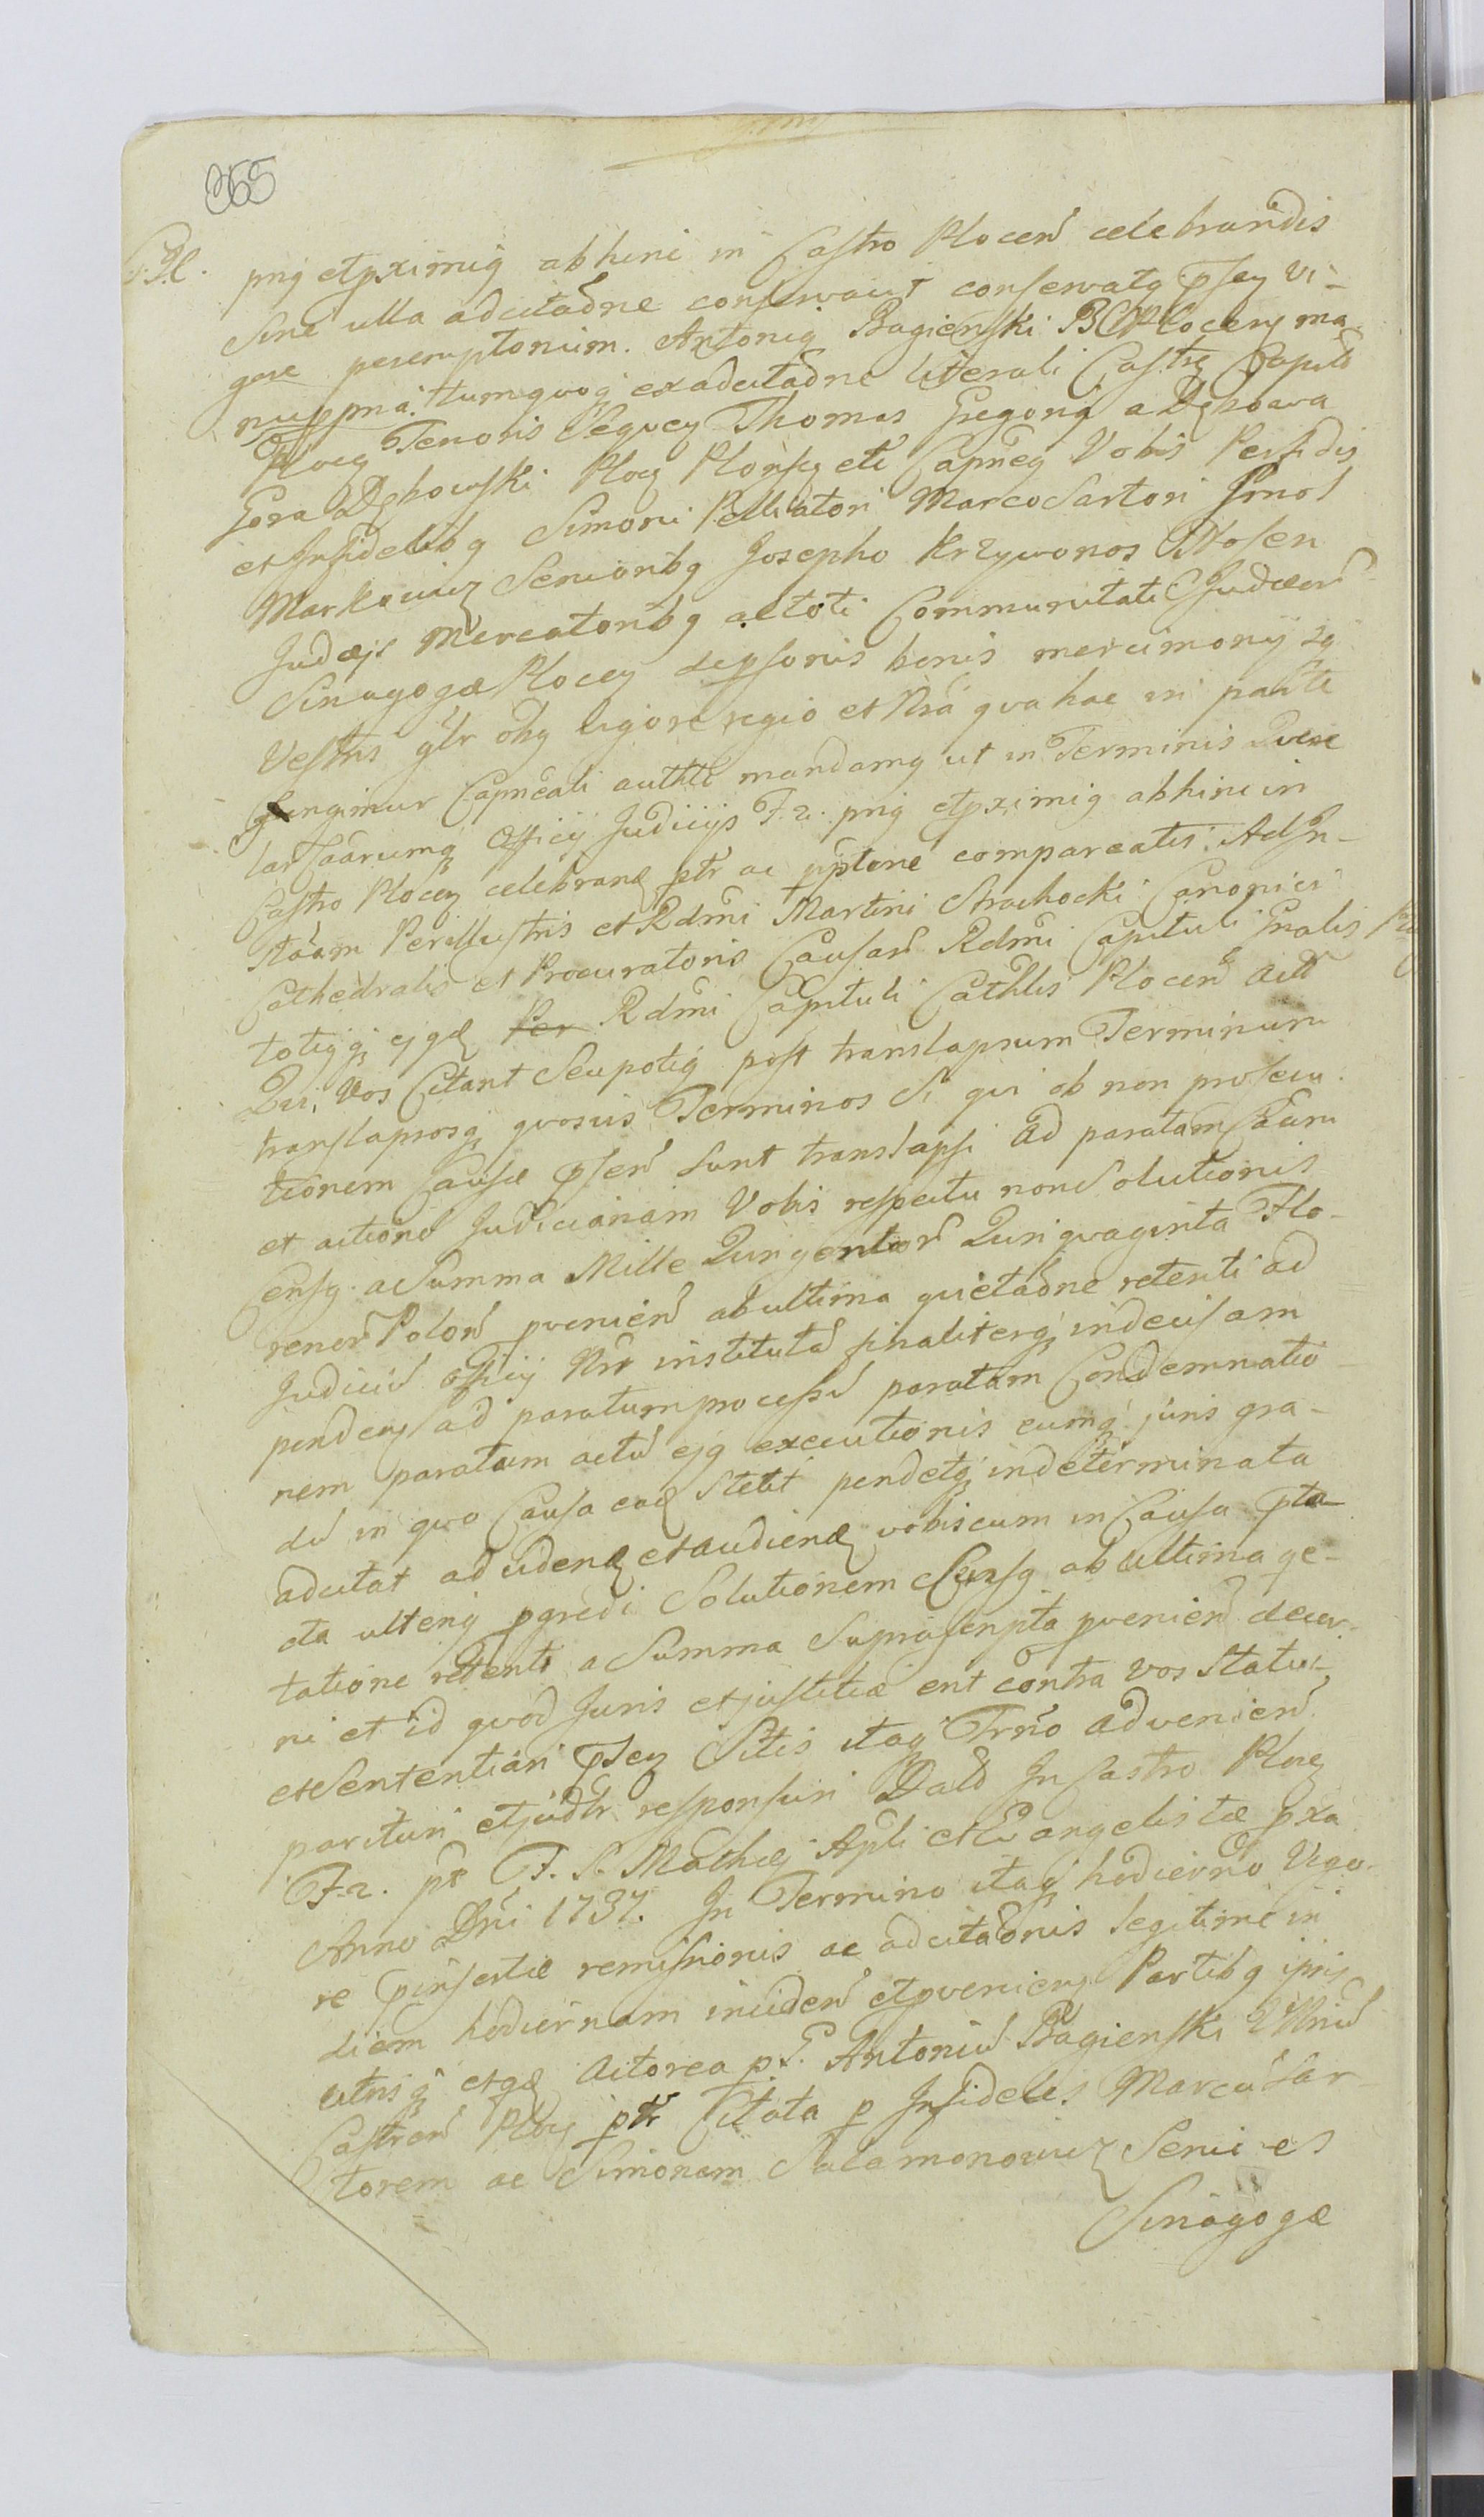 365
png etpximig abhinc in Castro Plocen celebrandis
sine ulla adcitaone conservavit conservatq psen Vi-
gore peremptorium. Antonig Bagienski B C Plocens ma
nu ppria. tumqvoq exadcitaone literali Castr Capitli
Plocen Tenoris Seqvey Thomas Gregorig a Dzkowa
Gora Dzkowski Ploc Plonsc etc Capneg Vobis Perfidis
et Infidelibg Simoni Pelliatori Marco Sartori
Markowicz Senioribg Josepho Krzywonos Wosen
Judaejs Mercatoribg ac toti Communitati Judaeor
Sinagogae Plocen depsonis bonis mercimonijsq
Vestris glr obg rigore regio et Nra qva hac in parte
fungimur Capneali authte mandamg ut in Terminis Qvere
lar Caarumq Officij Judicijs F. 2. png etpximig abhinc in
Castro Plocen celebran ptr ac pptorie compareatis. Ad In-
stãam Perillustris et Rdmi Martini Strachocki Canonici
Cathedralis et Procuratoris Causar Rdmi Capituli Gnalis
totigq ejgd Per Rdmi Capituli Cathlis Plocen Actt
Qui, Vos Citant Seupotig post translapsum Terminum
translaprosq qvosvis Terminos Si qui ob non prosecu
tionem Causae psen sunt translapsi ad paratam Caam
et actione Judiciariam Vobis respectu non Solutionis
Censg. a Summa Mille Quingentor Quinqvaginta Flo-
renor Polon pvenien ab ultima qvietaone retenti ad
Judiciu officij Nri institutã finaliterq indecisam
penden ad paratum processu paratam Condemnatio
nem paratam actu ejg executionis eumq juris gra-
du in qvo Causa ead Stetit pendetq indeterminata
adcitat ad viden et audien vobiscum in Causa pta
cta ulterig pgredi Solutionem Censg ab ultima qe-
tatione retenti a Summa Suprascripta pvenien decer-
ni et id qvod Juris et justitiae erit contra vos Statui,
et Sententiari psen Sitis itaq Trno advenien
parituri etjudlr responsuri Datt In Castro Ploc
F. 2. pt F. S. Mathaej Apli et Evangelistae pxa
Anno Dni 1737. In Termino itaq hodierno Vigo-
re pinsertae remissionis ac adcitaonis legitime in
diem hodiernam inciden etpvenien Partibg ipsis
utrisq et qd Actorea p G. Antoniu Bagienski
Castren Ploc ptr Citata p Infideles Marcu Sar
torem ac Simonem Salamonowicz Senio es
Sinagogae